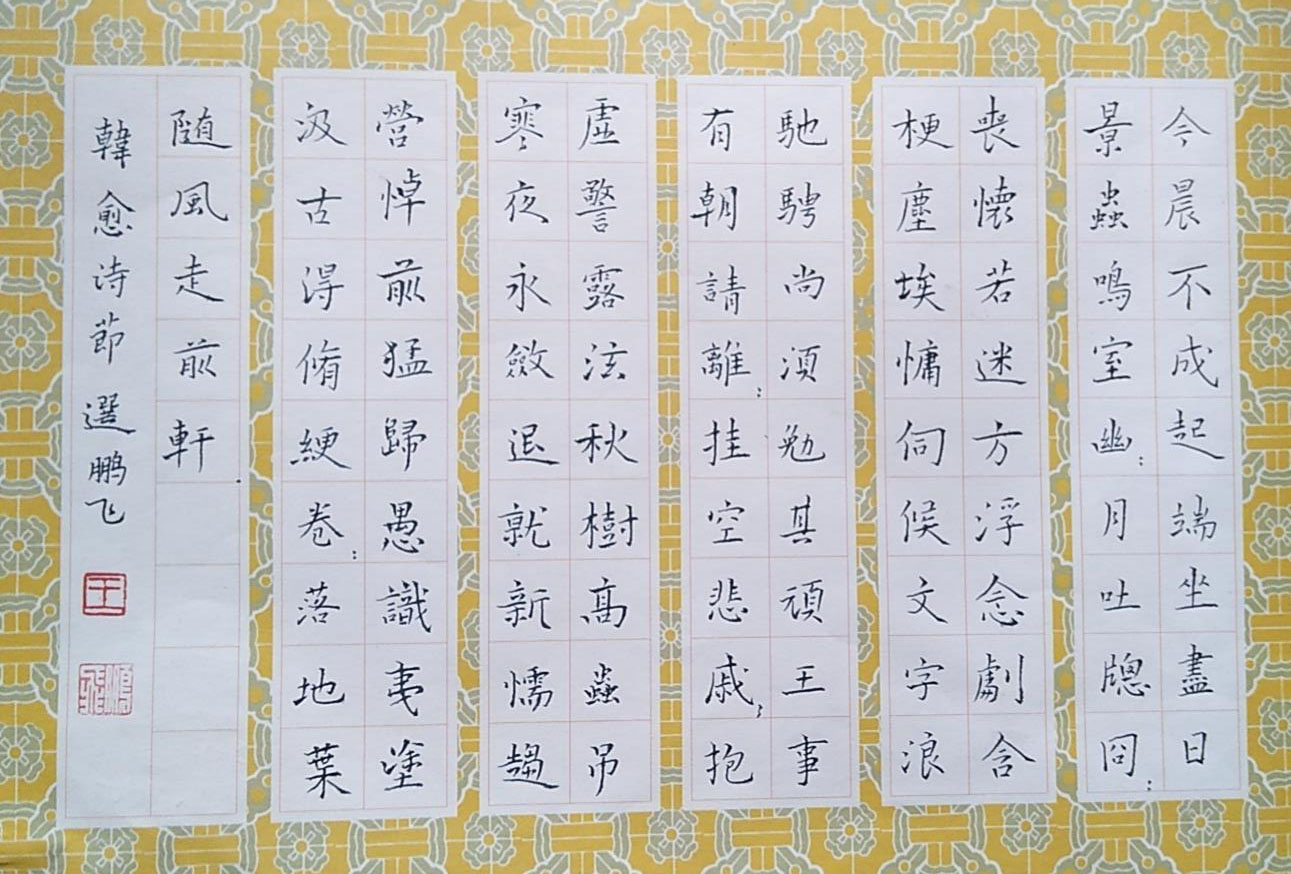 今晨不成起端坐盡日
景蟲鳴室幽〻月吐牕冏〻
喪懷若迷方浮念劇含
梗塵埃慵伺候文字浪
馳騁尚須勉其頑王事
有朝請離〻挂空悲戚〻抱
虛警露泫秋樹高蟲吊
寒夜永斂退就新懦趨
營悼前猛歸愚識夷塗
汲古得脩綆卷〻落地葉
随風走前軒
韓愈诗節選鹏飞
王